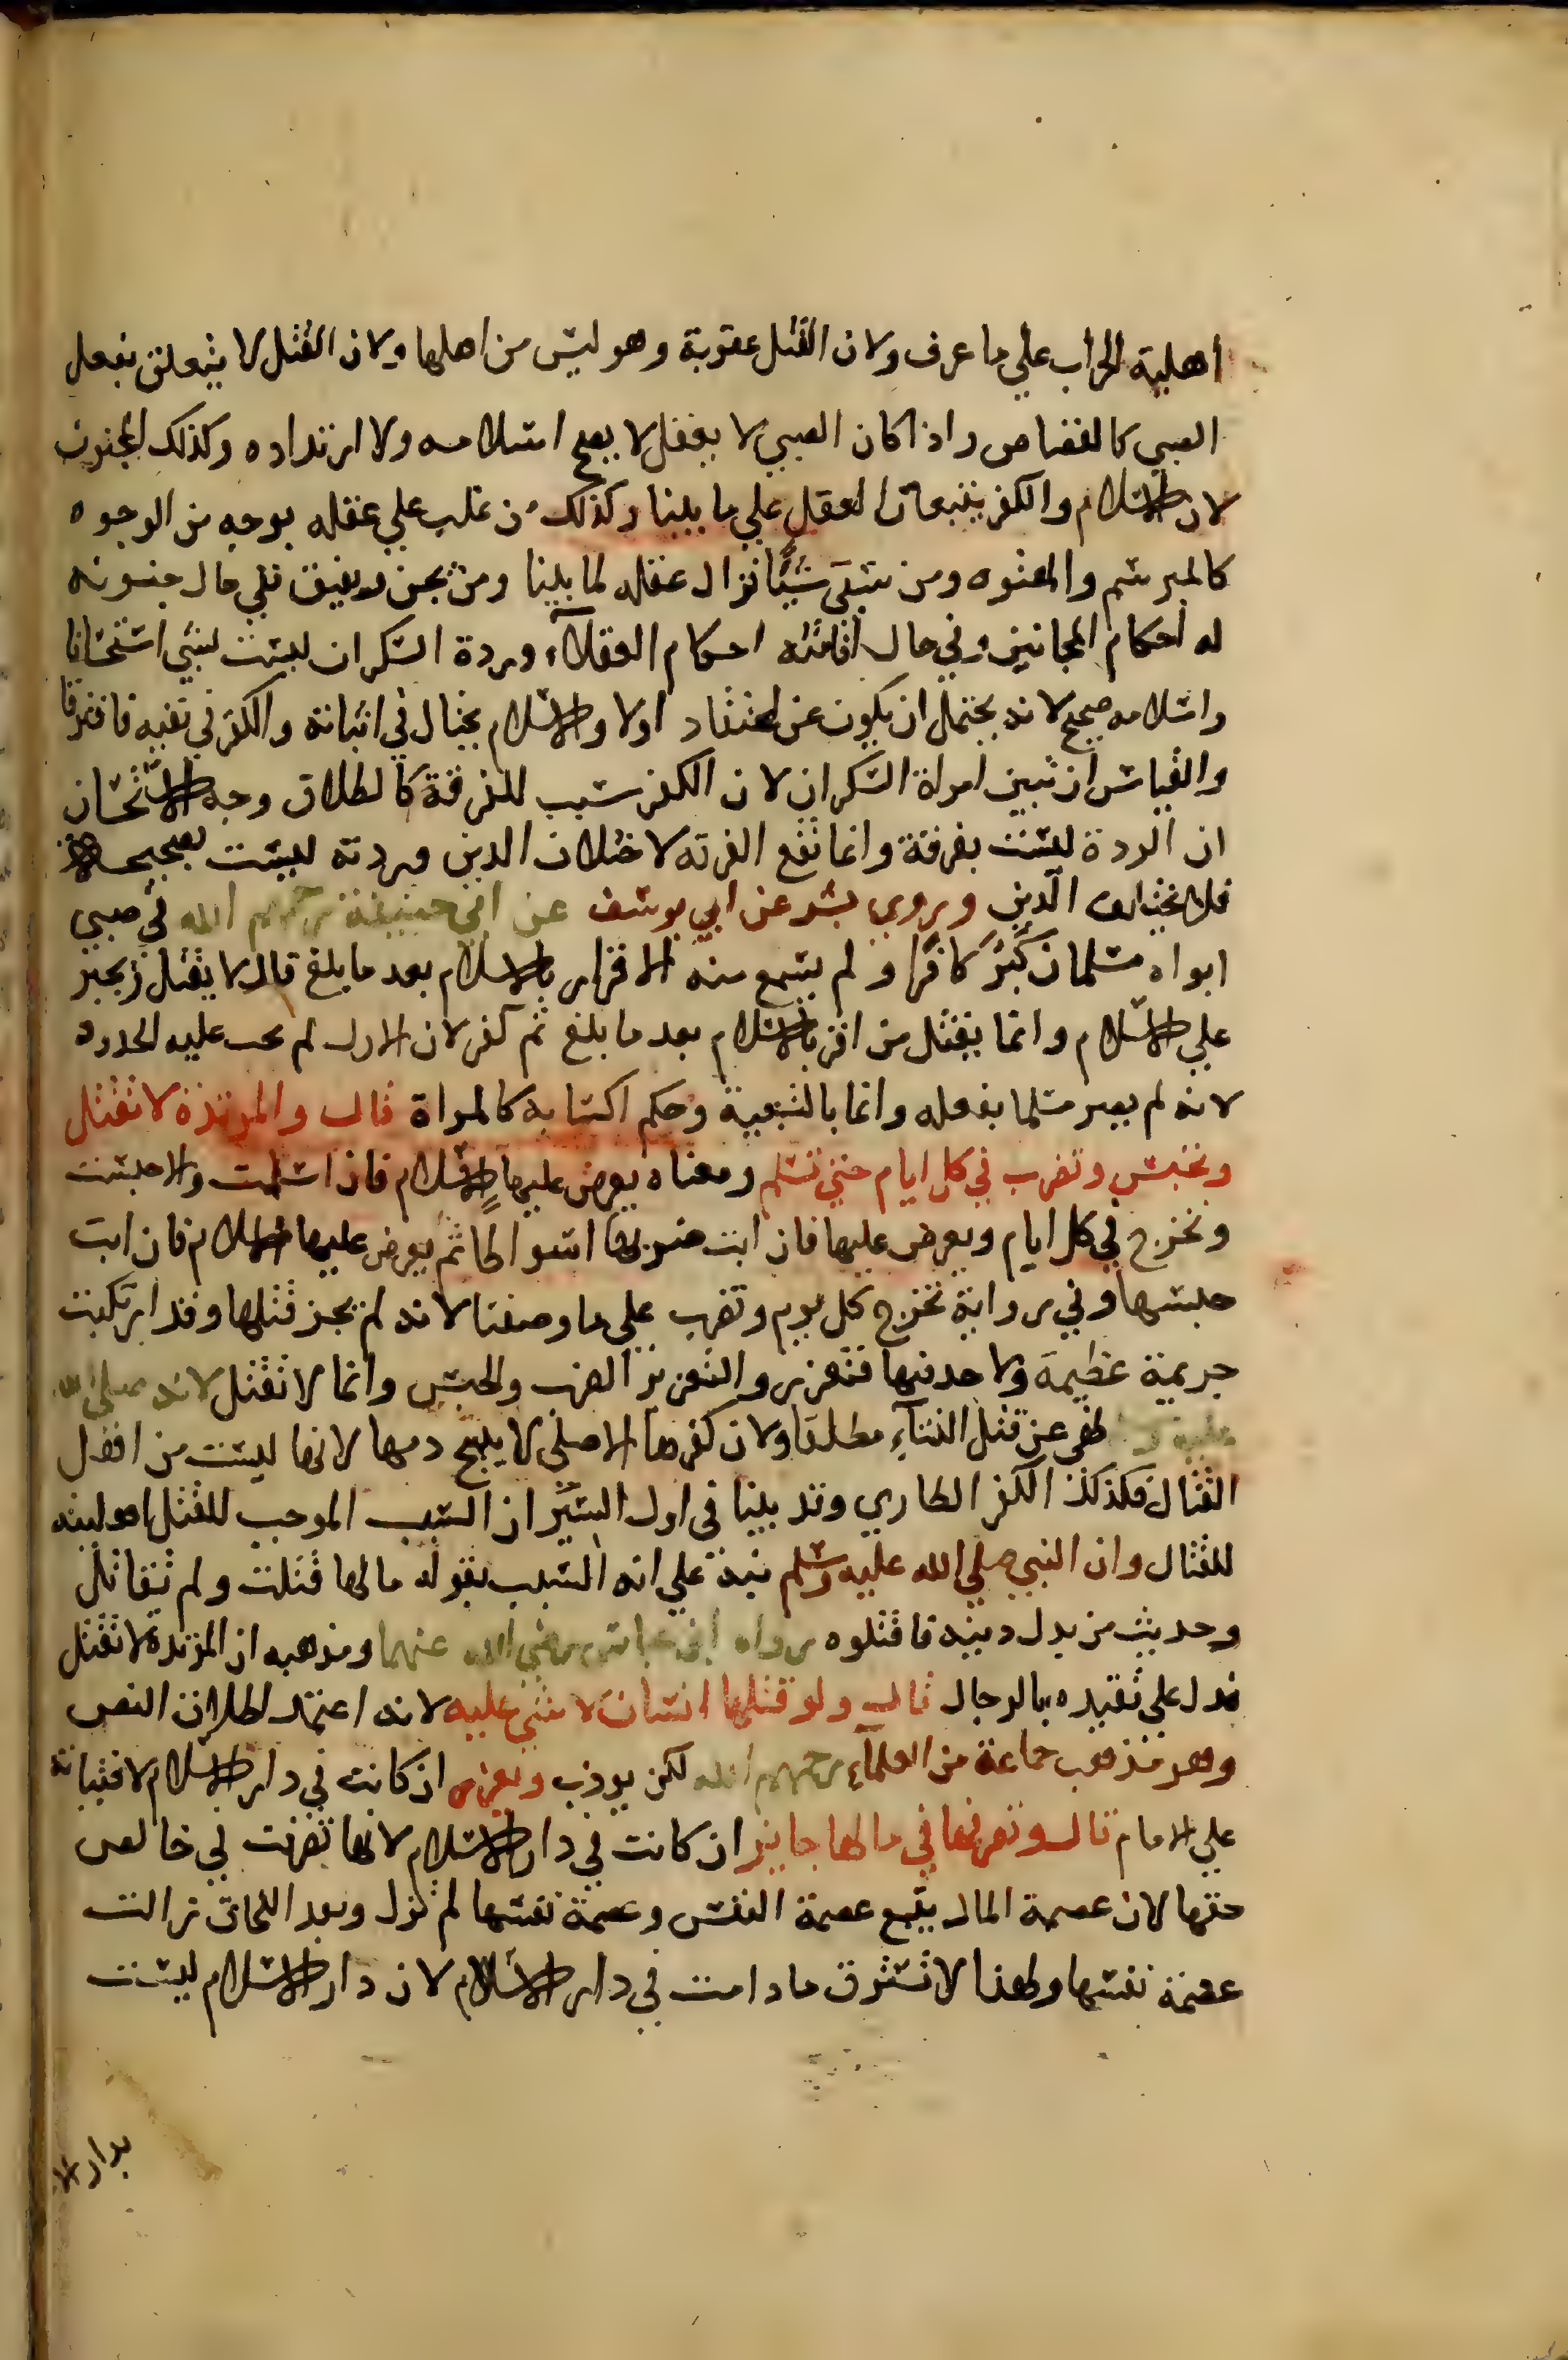 اهلية الحراب علي ما عرف ولان القتل عقوبة وهو ليس من اهلها ولان القتل لا يتعلق بفعل
الصبي كالقصاص واذا كان الصبي لا يعقل لا يصح اسلامه ولا ارتداده وكذلك المجنون
لان الاسلام والكفر يتبعان العقل علي ما بينا وكذلك من غلب علي عقله بوجه من الوجوه
كالمبرسم والمعتوه ومن سقي شيًا فزال عقله لما بينا ومن يجن ويفيق ففي حال جنونه
له احكام المجانين وفي حال افاقته احكام العقلآء وردة السكران ليست بشي استحسانا
واسلامه صحيح لانه يحتمل ان يكون عن اعتقاد اولا والاسلام يحتال في اثباته والكفر في نفيه فافترقا
والقياس ان تبين امراة السكران لان الكفر سبب للفرقة كالطلاق وجه الاستحسان
ان الردة ليست بفرقة وانما تقع الفرقه لاختلاف الدين وردته ليست بصحيحة
فلا يختلف الدين وروي بشر عن ابي يوسف عن ابي حنيفة رحمهم الله في صبي
ابواه مسلمان كبر كافرا ولم يسمع منه الاقرار بالاسلام بعد ما بلغ قال لا يقتل ويجبر
علي الاسلام وانما يقتل من اقر بالاسلام بعد ما بلغ ثم كفر لان الاول لم يجب عليه الحدود
لانه لم يصر مسلما بفعله وانما بالتبعية وحكم اكسابه كالمراة قال والمرتدة لا تقتل
وتحبس وتضرب في كل ايام حتي تسلم ومعناه يعرض عليها الاسلام فان اسلمت والا حبست
وتخرج في كل ايام ويعرض عليها فان ابت ضربها اسواطا ثم يعرض عليها الاسلام فان ابت
حبسها وفي رواية تخرج كل يوم وتضرب علي ما وصفنا لانه لم يجز قتلها وقد ارتكبت
جريمة عظيمة ولا حد فيها فتعزر والتعزير الضرب والحبس وانما لا تقتل لانه صلي الله
عليه و نهي عن قتل النسآء مطلقا ولان كفرها الاصلي لا يبيح دمها لانها ليست من اهل
القتال فكذلك الكفر الطاري وقد بينا في اول السير ان السبب الموجب للقتل اهليته
للقتال وان النبي صلي الله عليه وسلم نبه علي انه السبب بقوله ما لها قتلت ولم تقاتل
وحديث من بدل دينه فاقتلوه رواه ابن عباس رضي الله عنهما ومذهبه ان المرتدة لا تقتل
فدل علي تقيده بالرجال قال ولو قتلها انسان لا شي عليه لانه اعتمد اطلاق النص
وهو مذهب جماعة من العلمآء رحمهم الله لكن يودب ويعزر ان كانت في دار الاسلام لافتياته
علي الامام قال وتصرفها في مالها جايز ان كانت في دار الاسلام لانها تصرفت في خالص
حقها لان عصمة المال يتبع عصمة النفس وعصمة نفسها لم تزل وبعد اللحاق زالت
عصمة نفسها ولهذا لا تسترق ما دامت في دار الاسلام لان دار الاسلام ليست
بدار الا